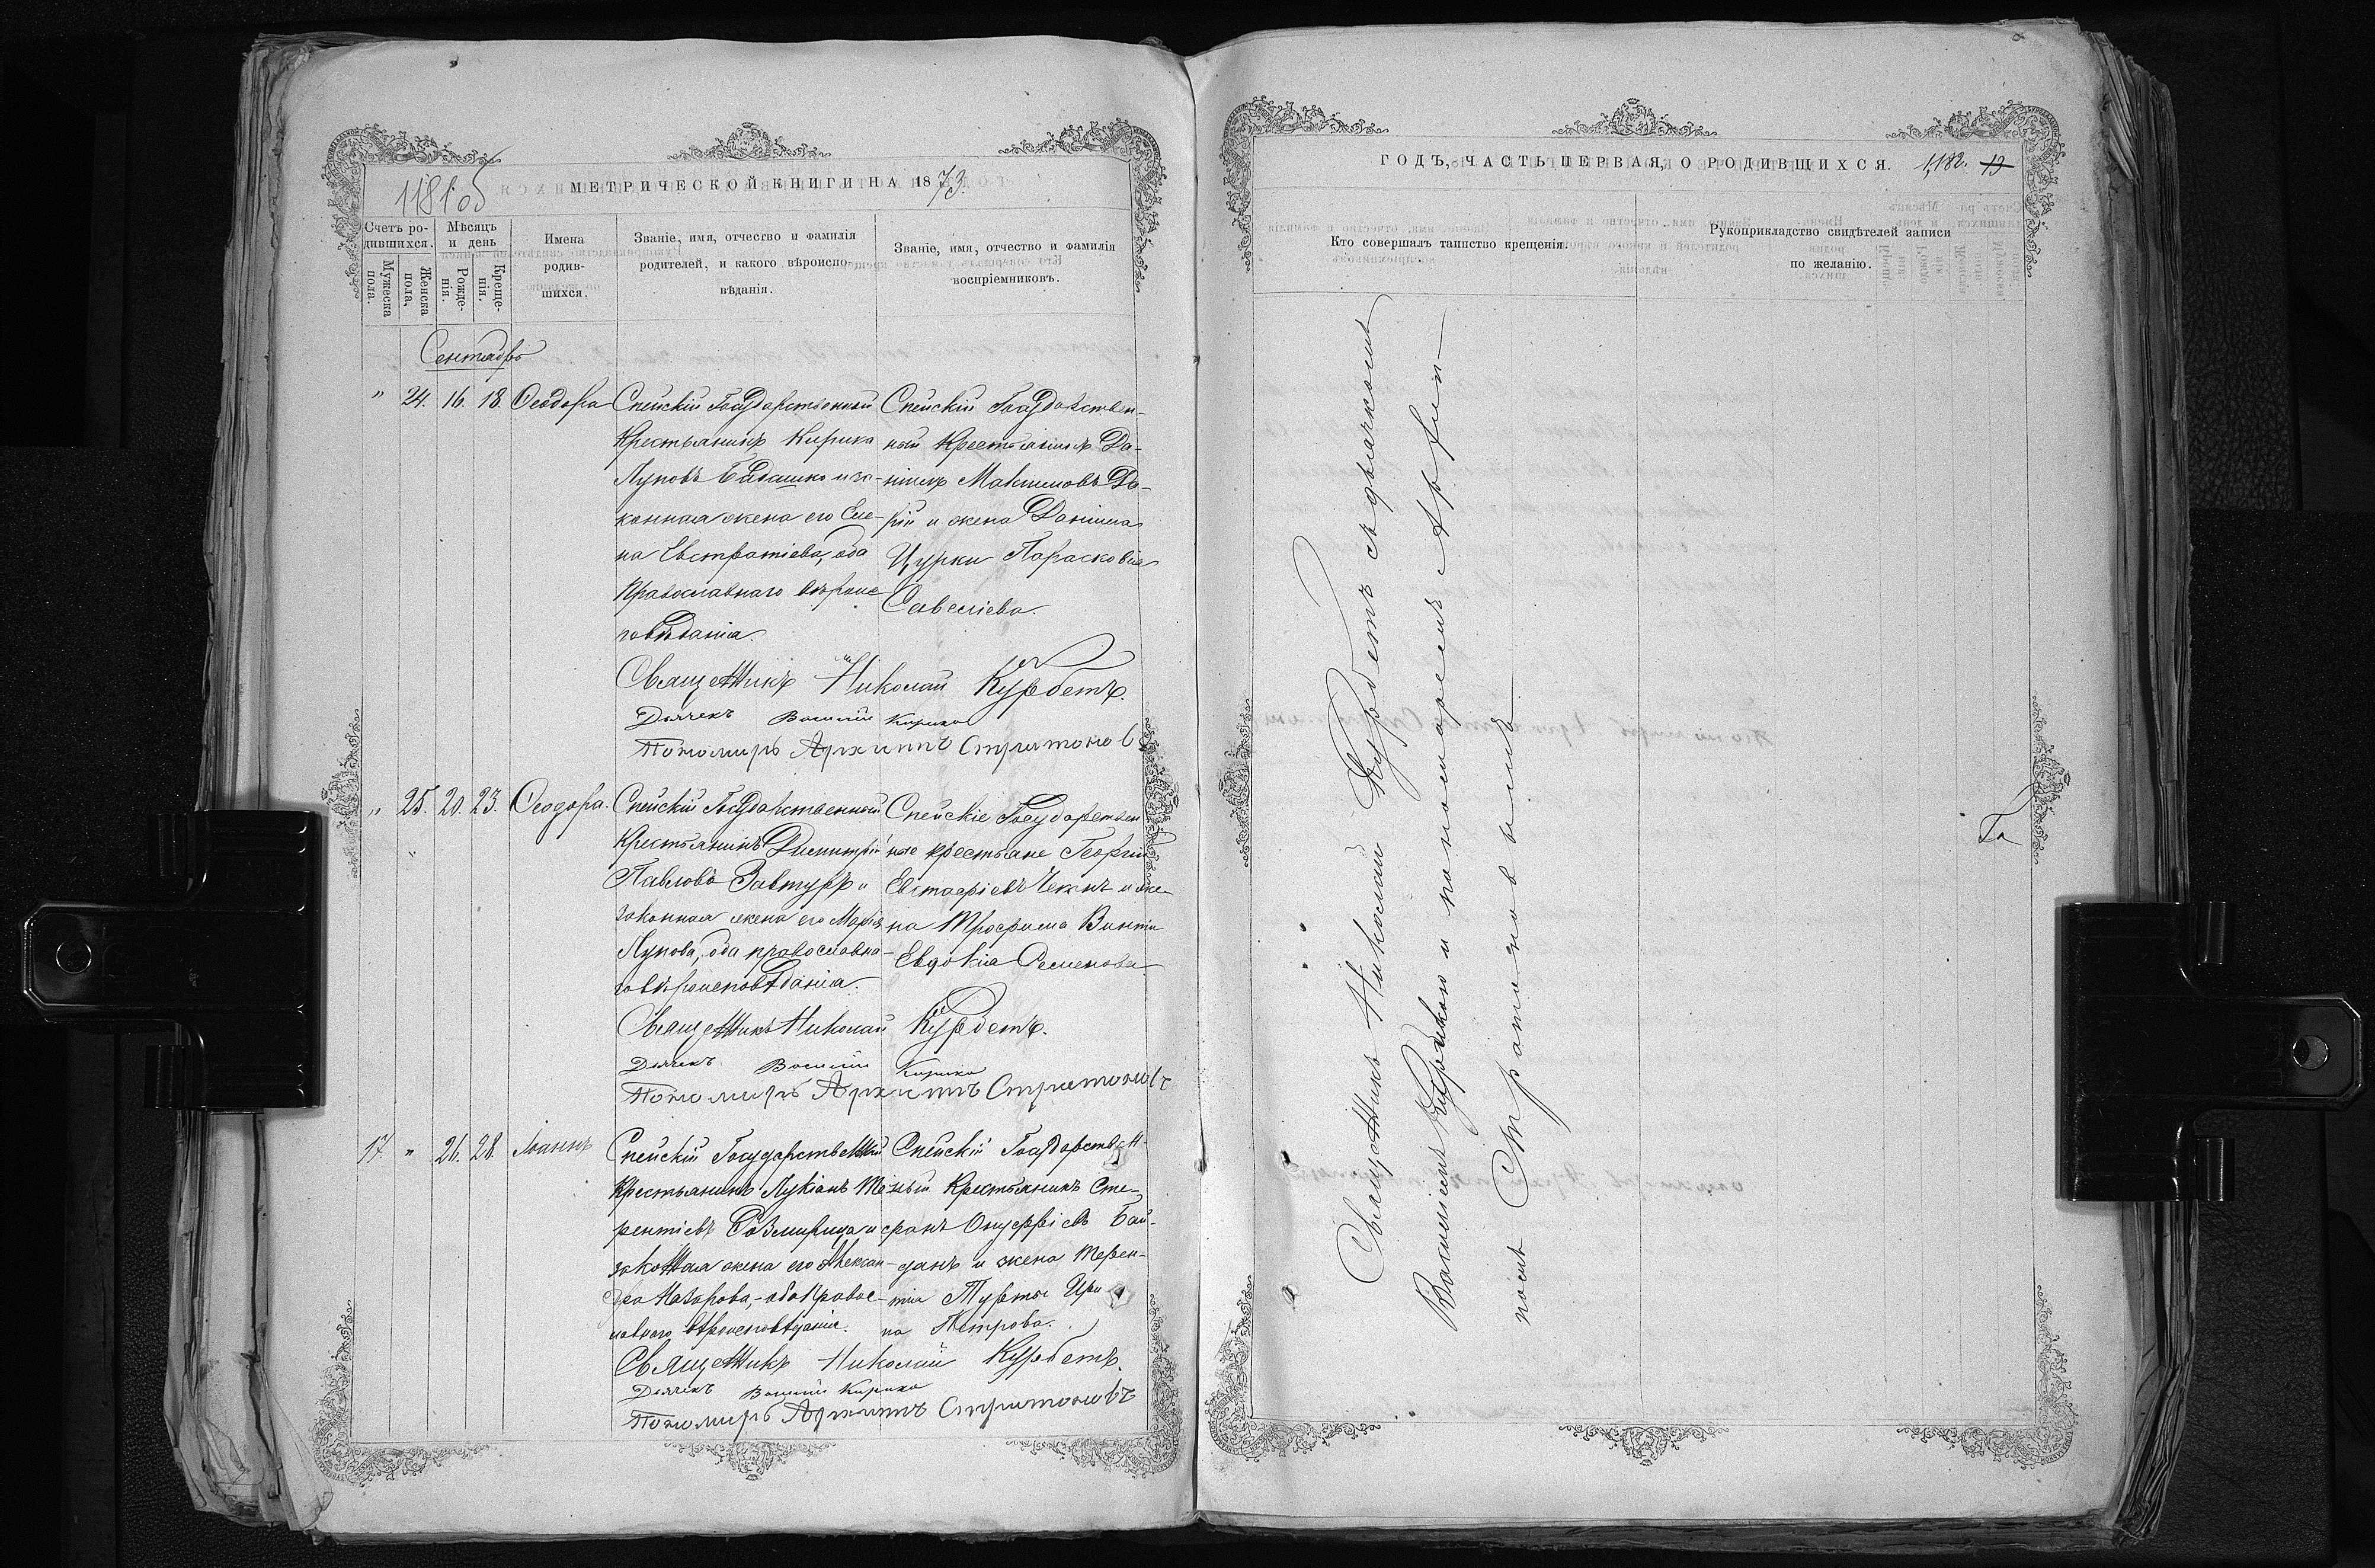 1181 об
МЕТРИЧЕСКОЙ КНИГИ НА 1873.
Счетъ ро-
дившихся.
Мужеска
пола.
Женска
пола.
Мѣсяцъ
и день
Рожде-
нія.
Креще-
нія.
Имена
родив-
шихся.
Званіе, имя, отчество и фамилія
родителей, и какого вѣроиспо-
вѣданія.
Званіе, имя, отчество и фамилія
воспріемниковъ.
Сентябрь
" 24. 16. 18. Ѳеодора
Спейскій Государственный
Крестьянинъ Кирика
Луповъ и за-
конная жена его Еле-
на Евстратіева, оба
Православнаго вѣроис
повѣданія.
Спейскій Государствен-
ный Крестьянинъ Да-
ніилъ Максимовъ Да-
рій и жена Даніила
Цурки Парасковія
Савеліева.
Священникъ Николай Курбетъ.
Дьячекъ Василій Кирика
Пономарь Архипъ Стратоновъ
" 25. 20. 23. Ѳеодора.
Спейскій Государственный
Крестьянинъ Димитрій
Павловъ Завтуръ и
законная жена его Марія
Лупова, оба православна-
го вѣроисповѣданія.
Спейскіе Государствен
ные крестьяне Георгій
Евстафіевъ Чеканъ и же-
на Трофима Винти
Евдокіа Семенова
Священникъ Николай Курбетъ.
Дьячекъ Василій Кирика
Пономарь Архипъ Стратоновъ
17. " 26. 28. Іоаннъ
Спейскій Государственный
Крестьянинъ Лукіанъ Те-
рентіевъ и
законная жена его Алексан-
дра Назарова, - оба Правос-
лавнаго вѣроисповѣданія.
Спейскій Государствен-
ный Крестьянинъ Сте-
фанъ Онуфріевъ Бай-
данъ и жена Терен-
тія Ири
на Петрова.
Священникъ Николай Курбетъ.
Дьячекъ Василій Кирика
Пономарь Архипъ Стратоновъ
ГОДЪ, ЧАСТЬ ПЕРВАЯ, О РОДИВШИХСЯ. 1,182. 13
Кто совершалъ таинство крещенія.
Рукоприкладство свидѣтелей записи
по желанію.
Священникъ Николай Курбетъ съ дьячкомъ
Василіемъ Кирикою и пономаремъ Архип-
помъ Стратоновимъ